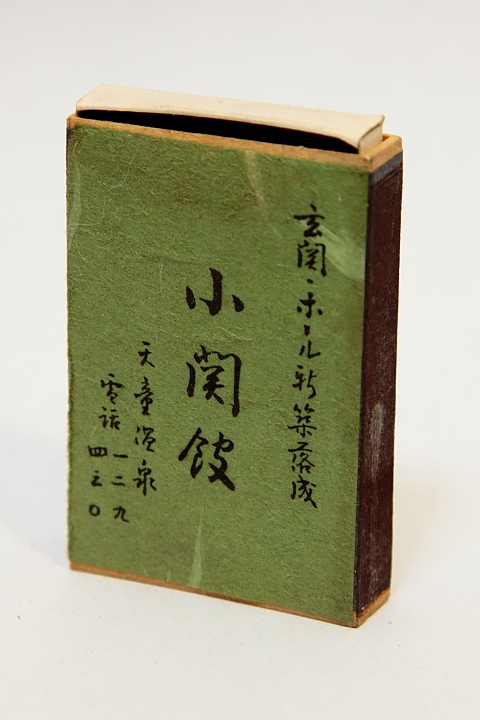 玄関・ホール新築落成
小関館
天童温泉
電話 一二九
四三〇